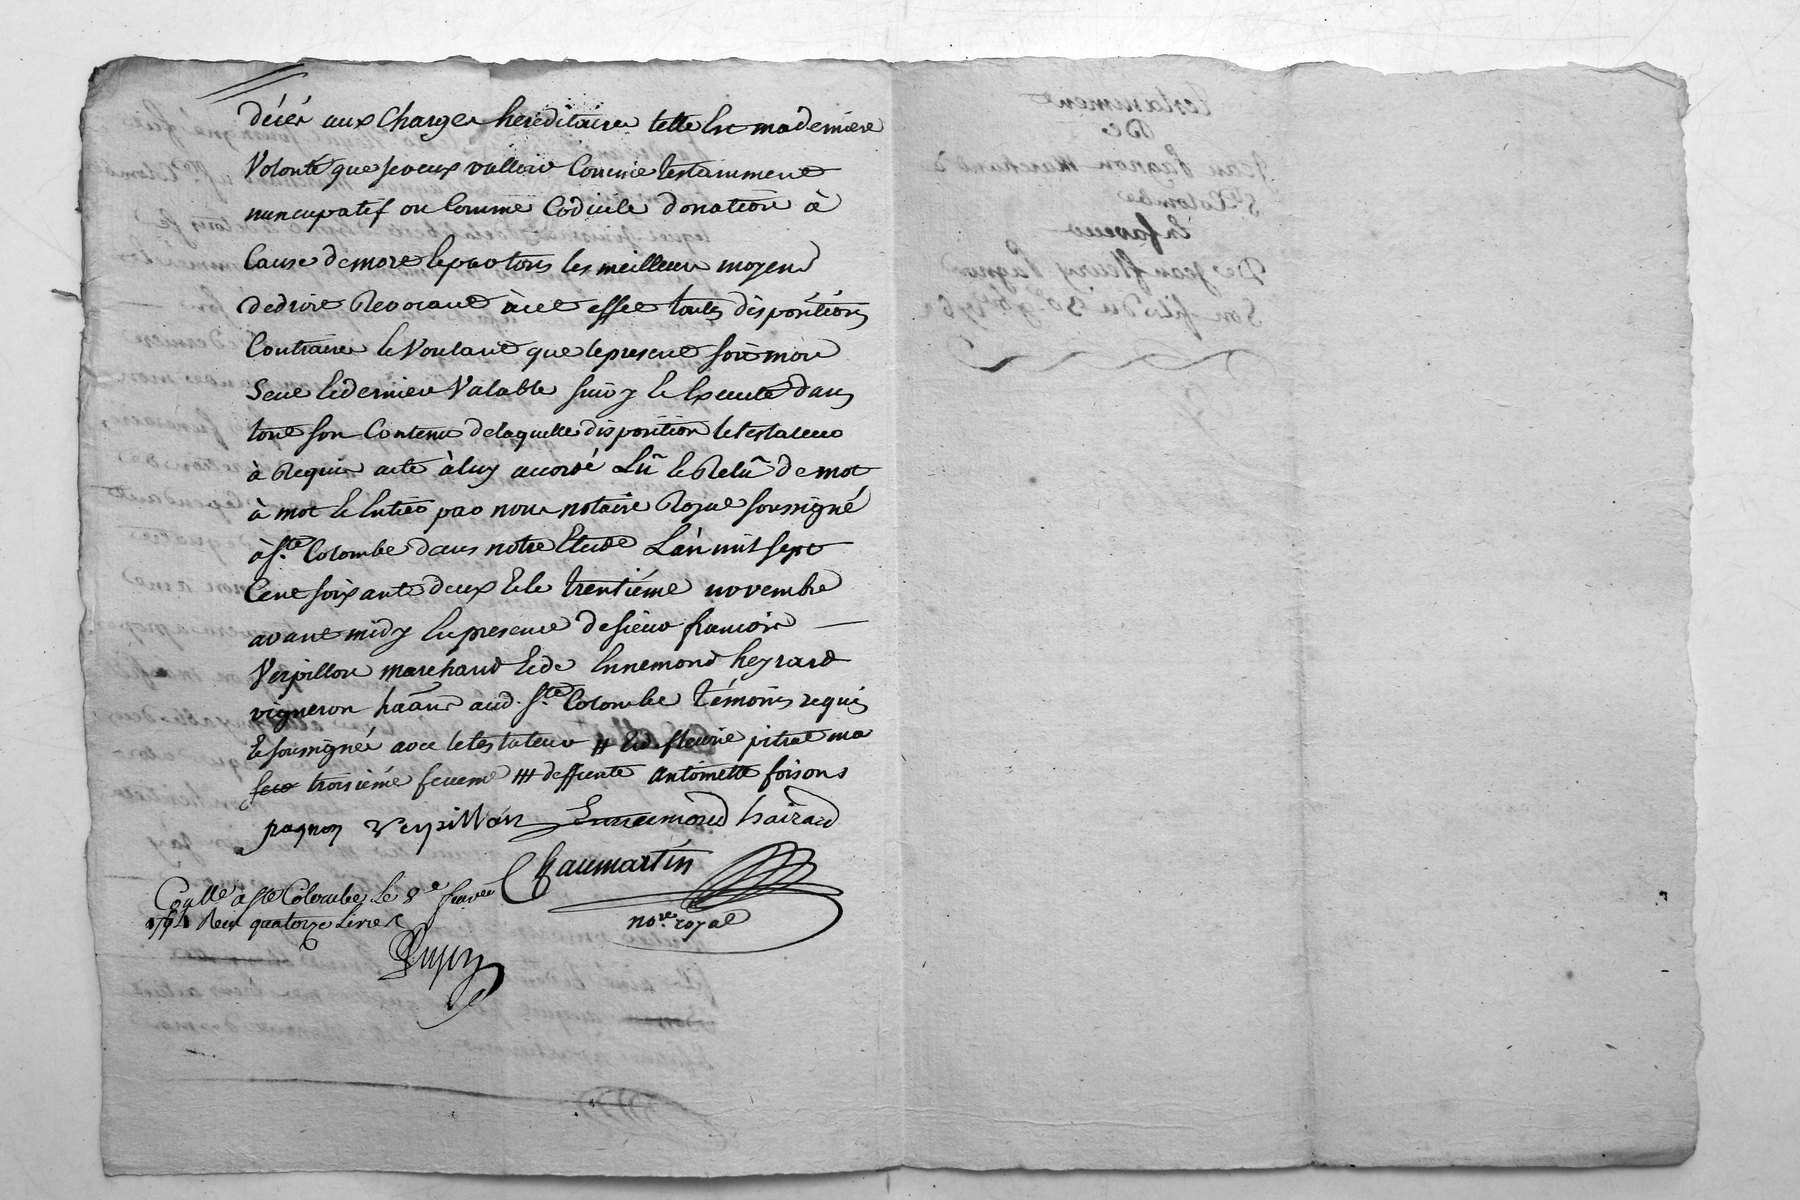 décés aux Charges hereditaires telle Est maderniere
Volonté que jeveux valloir Comme testamment
nuncupatif ou Comme Codicile donation à
Cause demort Etpar tous les meilleurs moyens
dedroit Revocant àcet effet toutes dispositions
Contraires Et Voulant que lepresent soit mon
Seul Etdernier Valable suivy Et Executé dans
tout son Contenu delaquelle disposition letestateur
à Requis acte àluy accordé Lû Et Relû de mot
à mot Et Entier par nous notaire Royal soussigné
à Ste. Colombe dans notre Etude Lan mil sept
Cent soixante deux Et le trentiéme novembre
avant midy En presence de sieur francois
Verpillon marchand Et de Ennemond heyrard
vigneron hãans aud. Ste. Colombe témoins requis
Et soussignés avec le testateur # Et de fleurie pitrat ma
troisiéme femme ## deffunte antoinette foisons
pagnon Verpillon Ennemond hairard
Chaumartin
nore. royal
Conllé à Ste Colombe Le 8e fevrier
Reçu quatorze Livres
Testamment
De
Jean Pagnon Marchand à
Ste Colombe
En faveur
De Jean fleury Pagnon
Son fils du 30e 9bre 1762